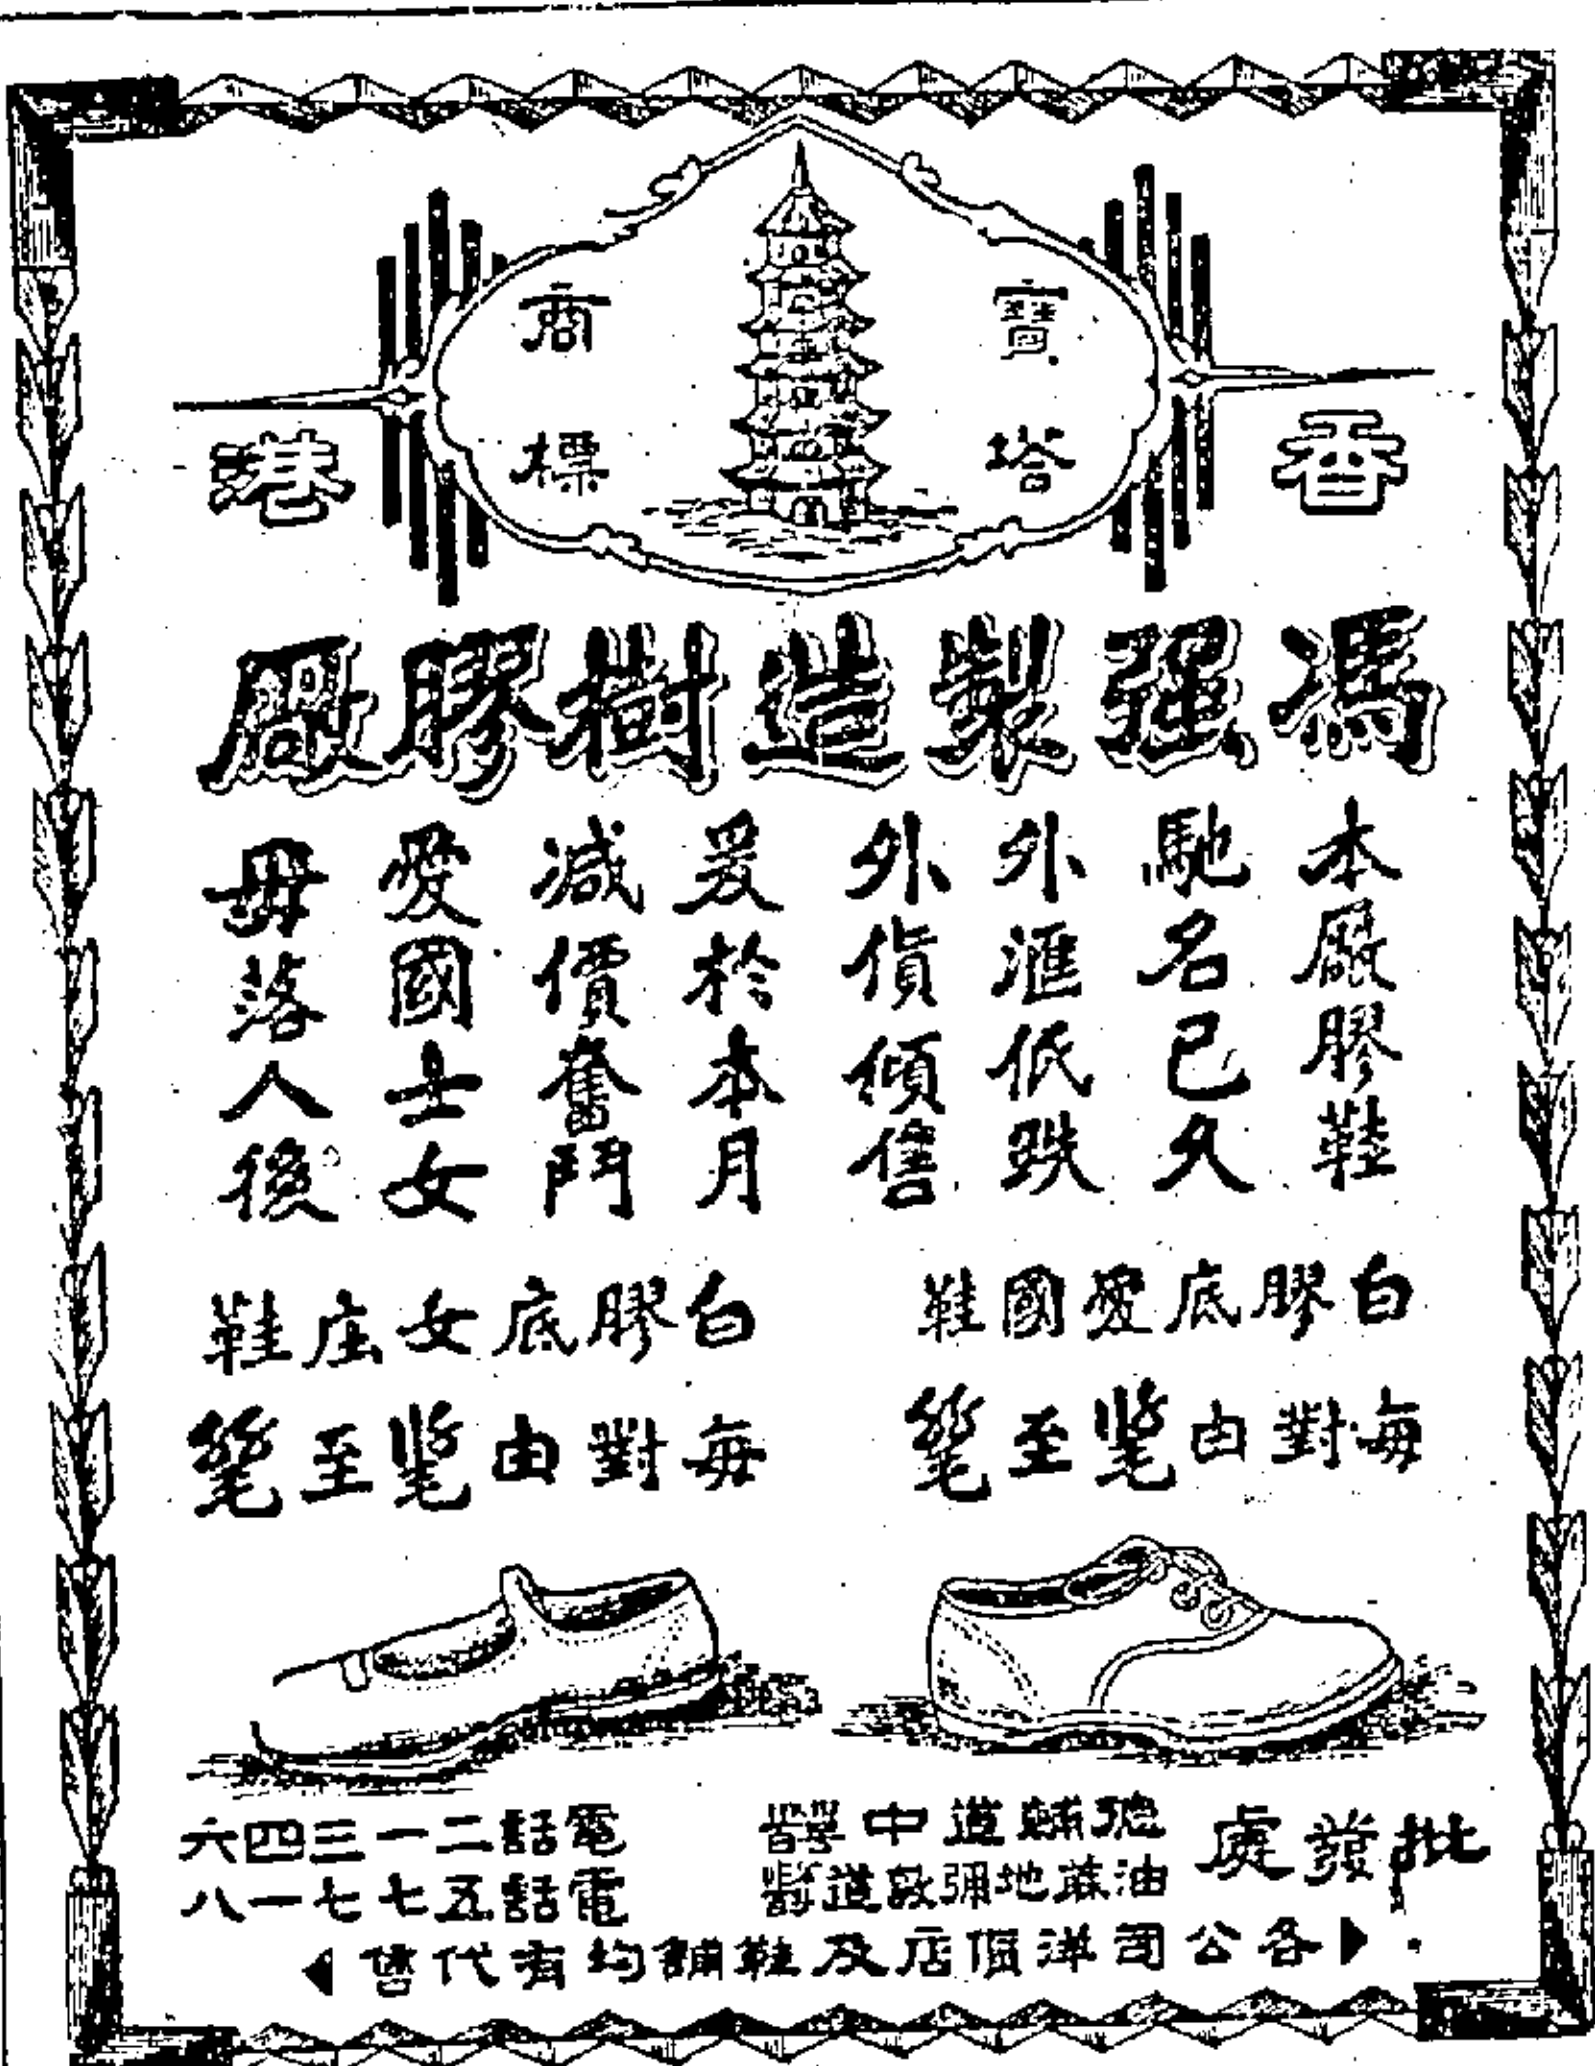 寶塔
商標
香港
馮強製造樹膠廠
本廠膠鞋
馳名已久
外滙低跌
外貨傾售
爰於本月
減價奮鬥
愛國士女
毋落人後
白膠底愛國鞋
每對由至
白膠底女庄鞋
每對由至
批發處
德輔道中
油蔴地彌敦道
電話二一三四六
電話五七七一八
各公司洋貨店及鞋舖均有代售